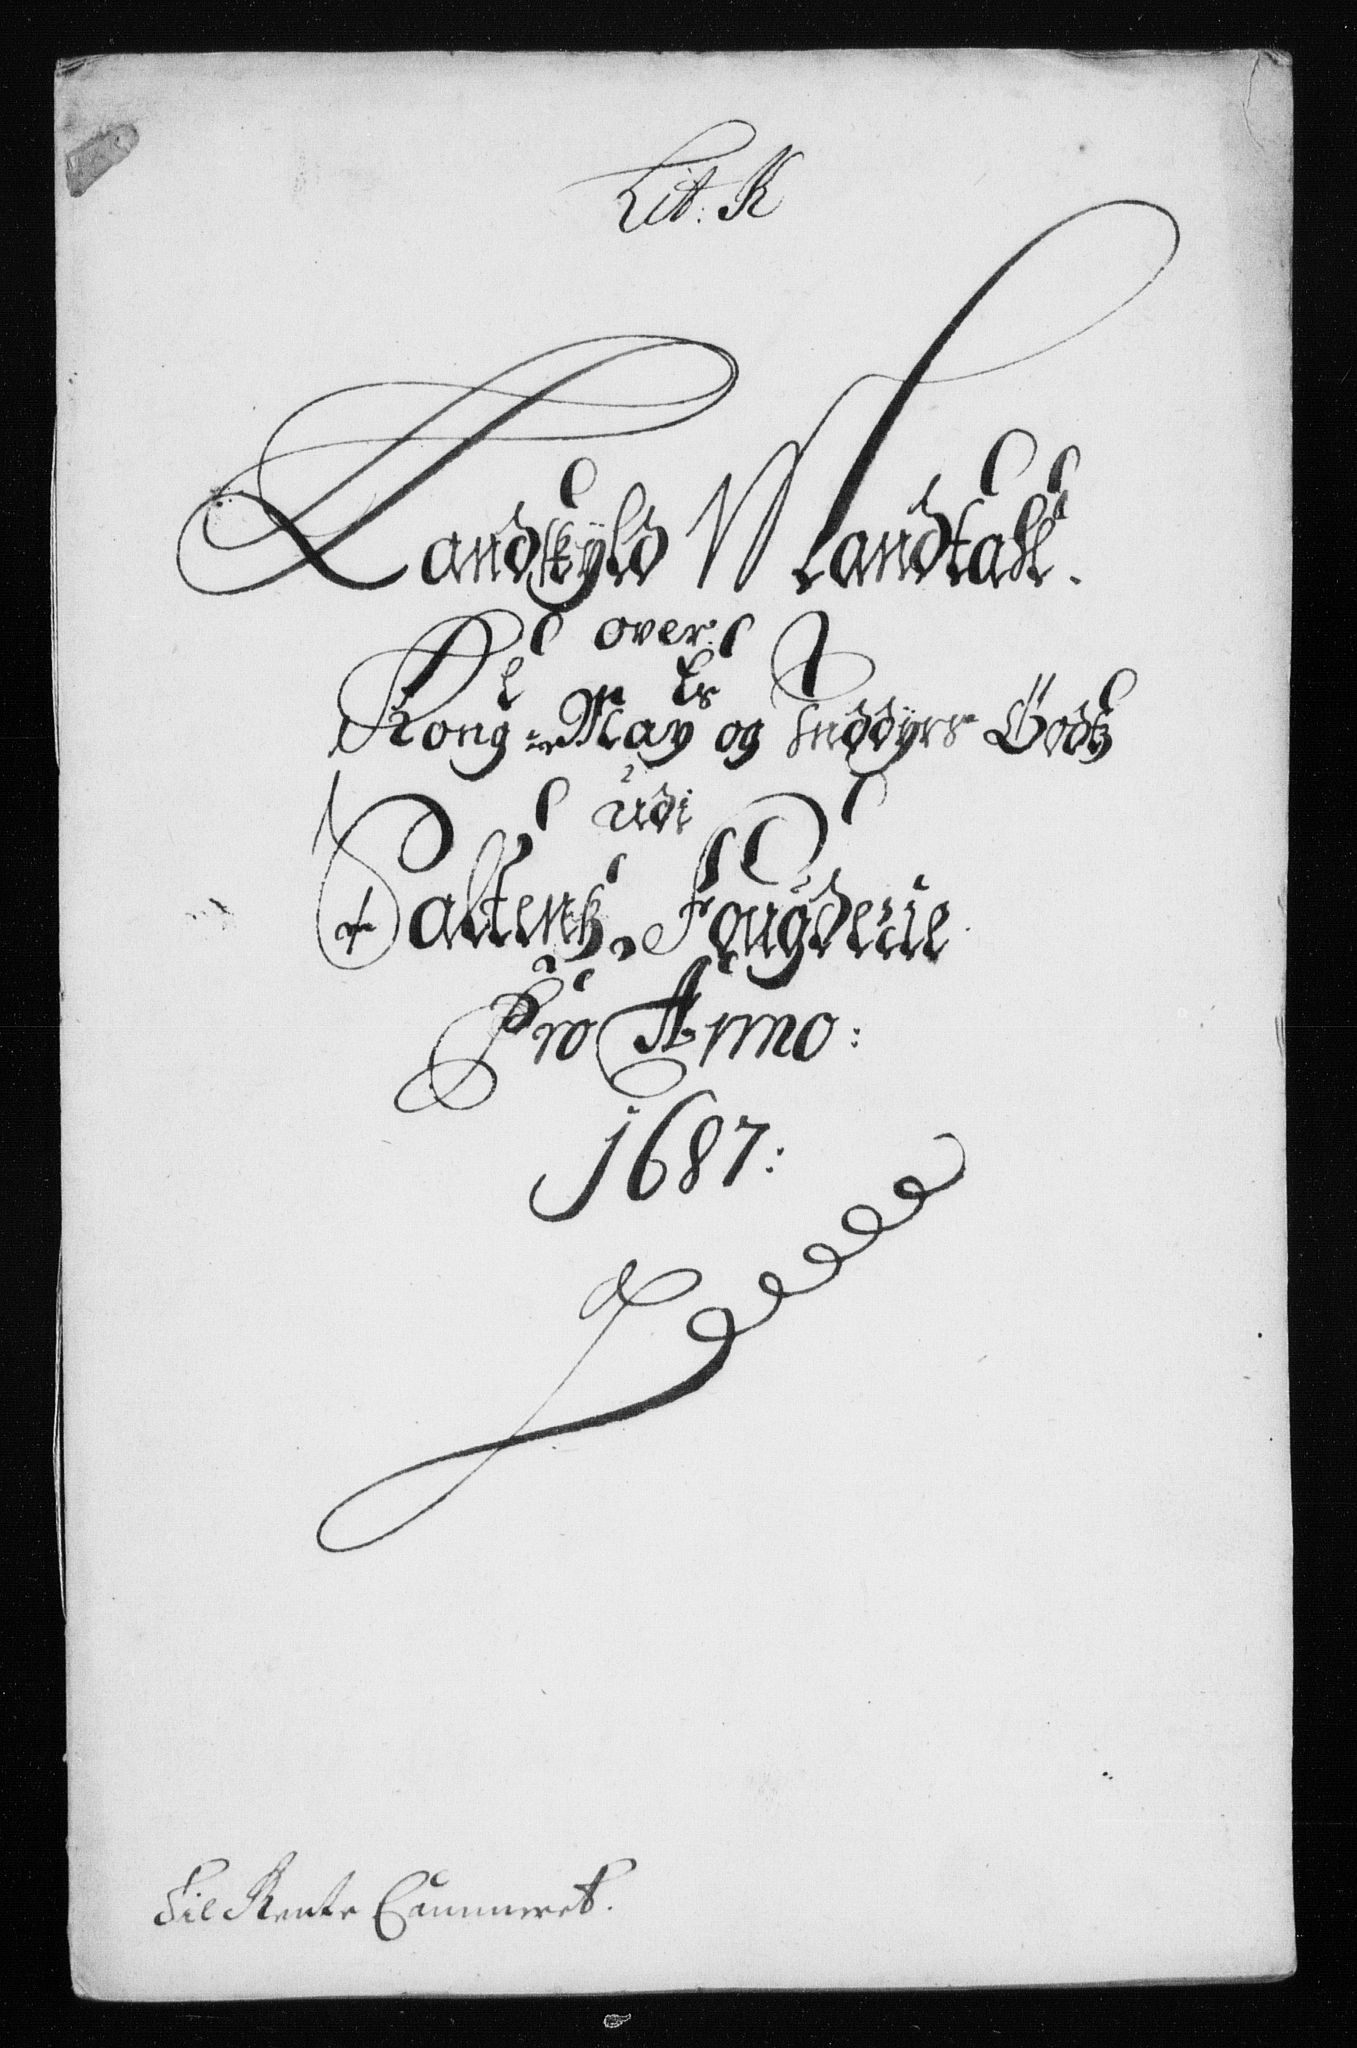 Lit: K
Landskÿld Mandtall.
over
Kong: Maÿts og Inddÿrs Godtz
udi
Saltens Fougderie
Pro Anno:
1687:
Til Rente Cammeret.